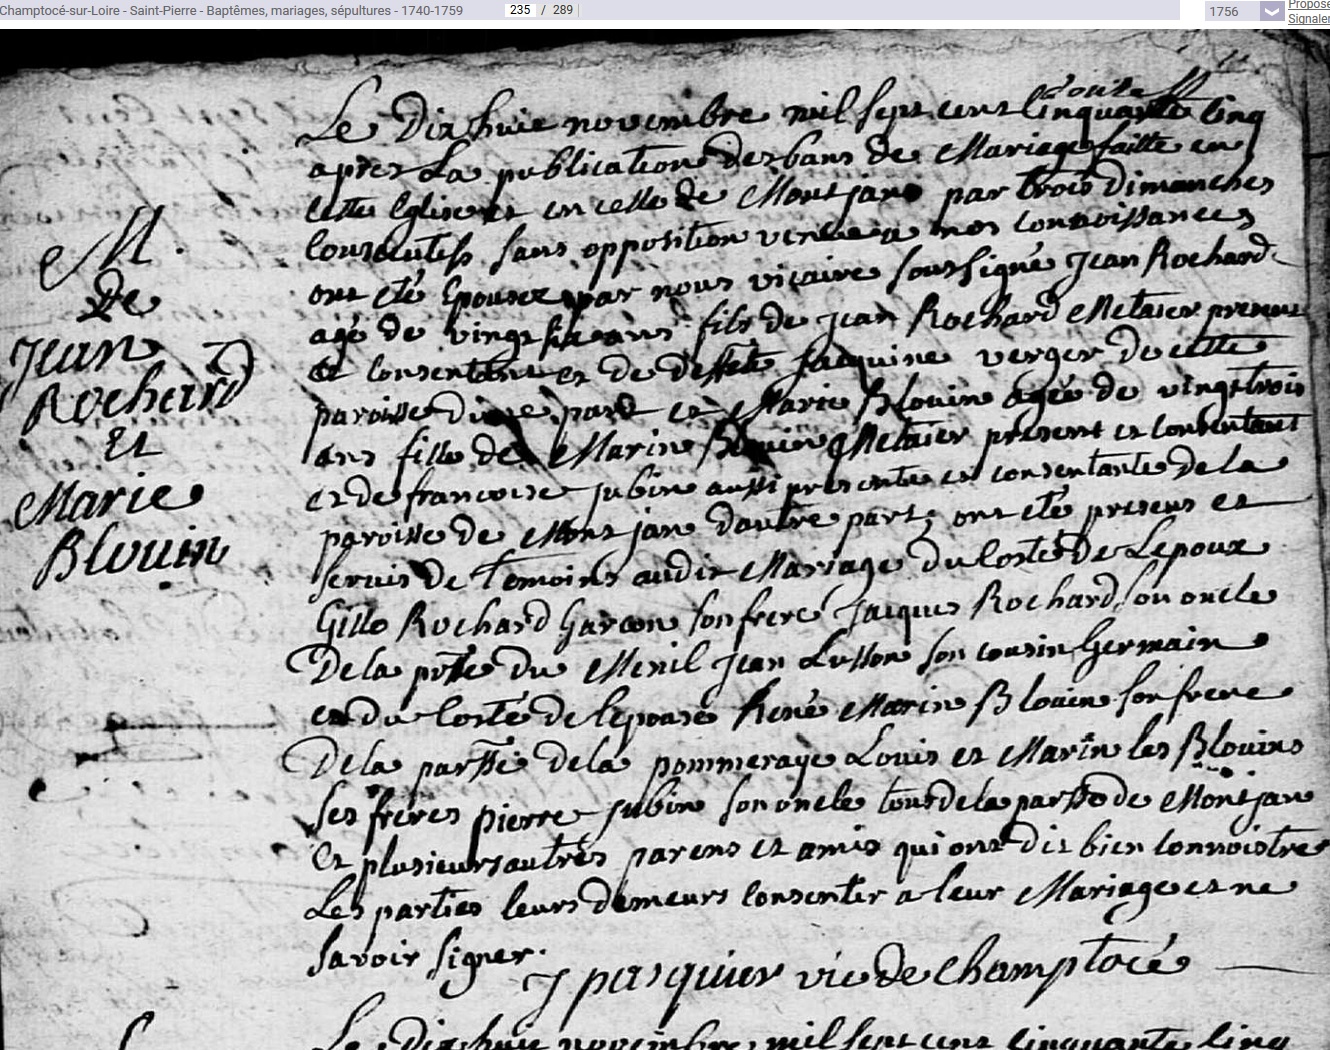 Champtocé-sur-Loire - Saint-Pierre - Baptêmes, mariages, sépultures - 1740-1759
235 / 289
1756
Propose
Signaler
Le Dixhuit novembre mil sept cent Cinquante Cinq
apres La publication Des bans de Mariage faitte en
cette Eglise et en celle de Montjan par trois Dimanches
Consecutifs sans opposition venue a nos connoissances
ont eté Epousez par nous vicaire soussigné Jean Rochard
agé de vingt six ans fils de Jean Rochard Metaier present
et Consentant et de Deffete Jacquine verger De cette
paroisse Dune part et Marie Blouin agée de vingt trois
ans fille de Marin Blouin Metaier present et Consentant
et de francoise Jubin aussi presente et consentante De la
paroisse de Montjan Dautre part; ont eté presens et
servis de Temoins audit Mariage Du Costé De Lepoux
Gille Rochard Garcon son frere Jacques Rochard son oncle
De la psse Du Menil Jean Lusson son cousin Germain
et du Costé de lepouse René Marin Blouin son frere
De la parsse de la pommeraye Louis et Marin les Blouins
ses freres pierre Jubin son oncle tous de la parsse de Montjan
Et plusieurs autres parens et amis qui ont Dit bien connoistre
Les parties leurs demeurs consentir a leur Mariage et ne
savoir signer.
J pasquier vic de Champtocé
M.
De
Jean
Rochard
Et
Marie
Blouin
Le Dixhuit novembre mil sept cent Cinquante Cinq